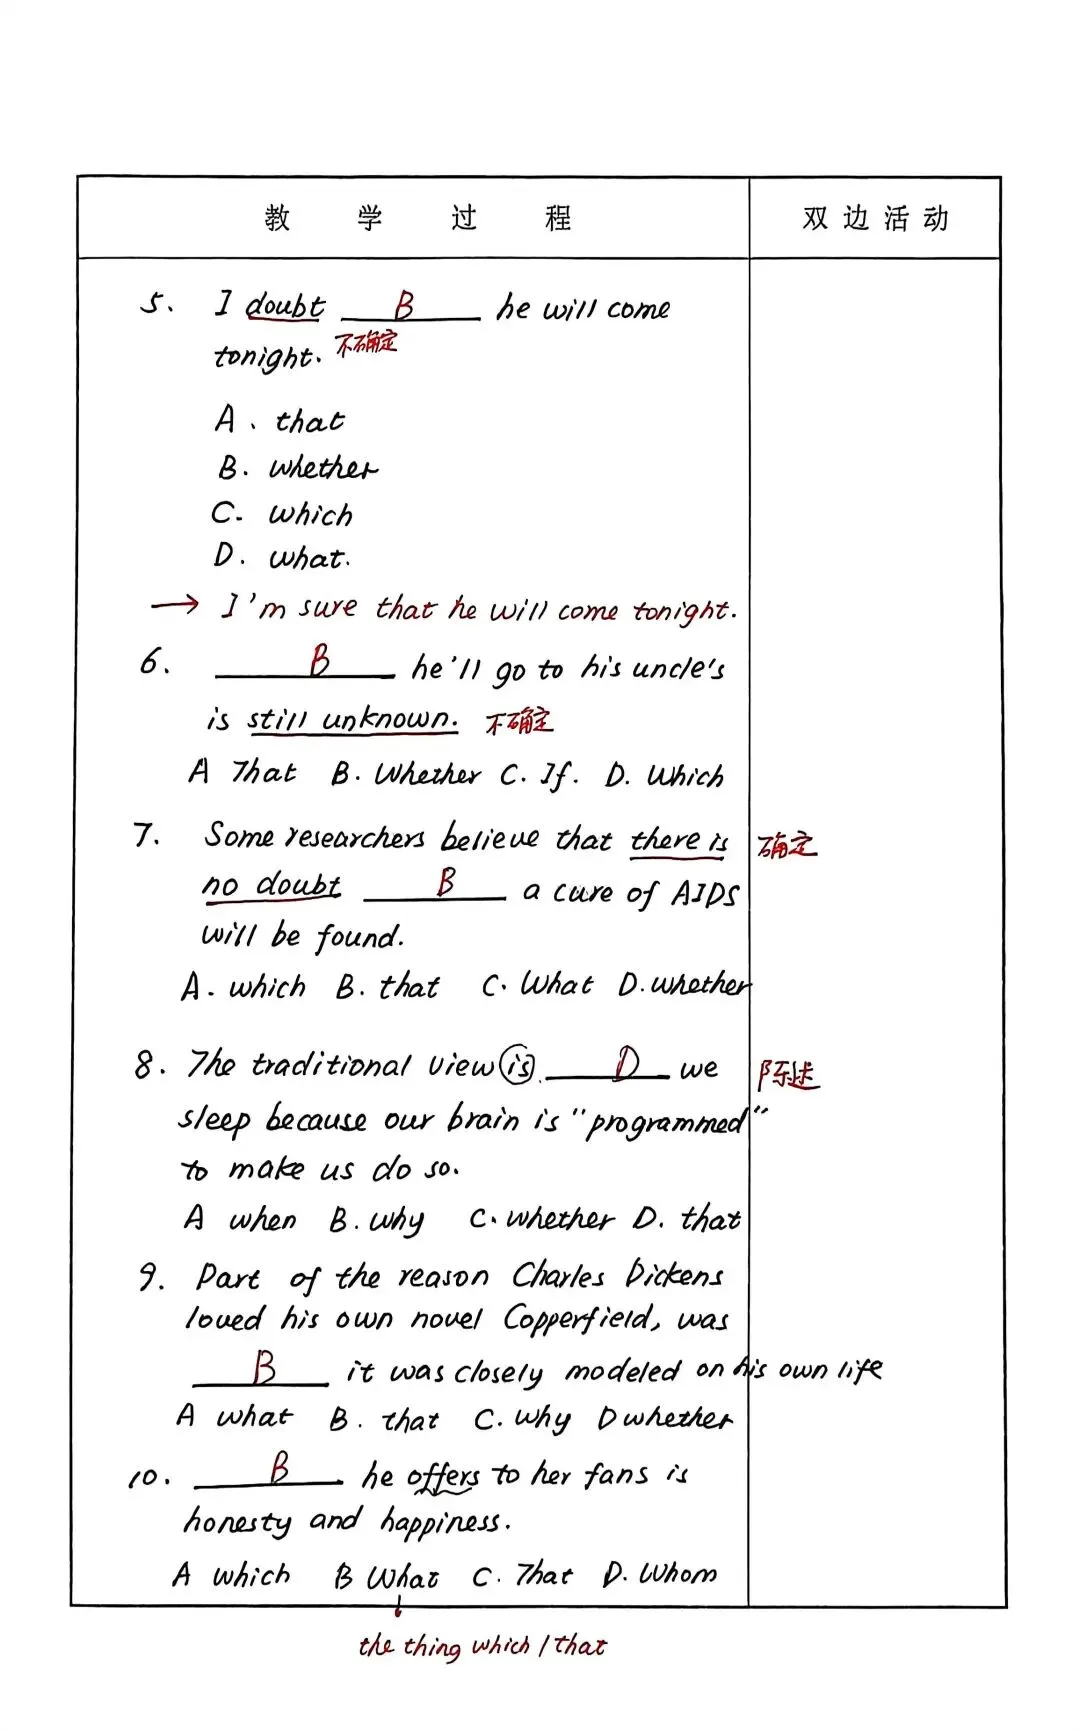 教 学 过 程 双边活动
5. I doubt B he will come
tonight. 不确定
A. that
B. whether
C. which
D. what.
→ I'm sure that he will come tonight.
6. B he'll go to his uncle's
is still unknown. 不确定
A That B. Whether C. If. D. Which
7. Some researchers believe that there is 确定
no doubt B a cure of AIDS
will be found.
A. which B. that C. What D. whether
8. The traditional view is D we 陈述
sleep because our brain is "programmed"
to make us do so.
A when B. why C. whether D. that
9. Part of the reason Charles Dickens
loved his own novel Copperfield, was
B it was closely modeled on his own life
A what B. that C. why D whether
10. B he offers to her fans is
honesty and happiness.
A which B What C. That D. Whom
the thing which / that